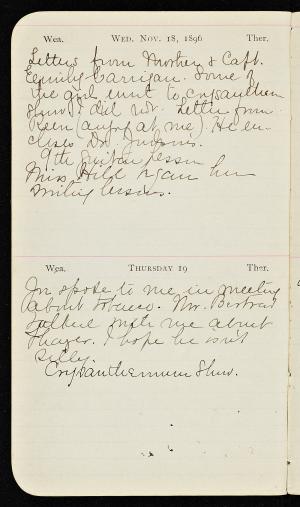 Wea. WED. NOV. 18, 1896 Ther.
Letters from Mother & Capt.
Carrigan. Some of
the girls went to Crysanthem
Show. I did not. Letter from
(angry at me). He en-
closes Dr.
9th guitar lesson
Miss Hild began her
writing lessons.
Wea. THURSDAY 19 Ther.
spoke to me in meeting
about tobacco. Mr.
with me about
Thayer. I hope he isn't
silly.
Crysanthemum Show.